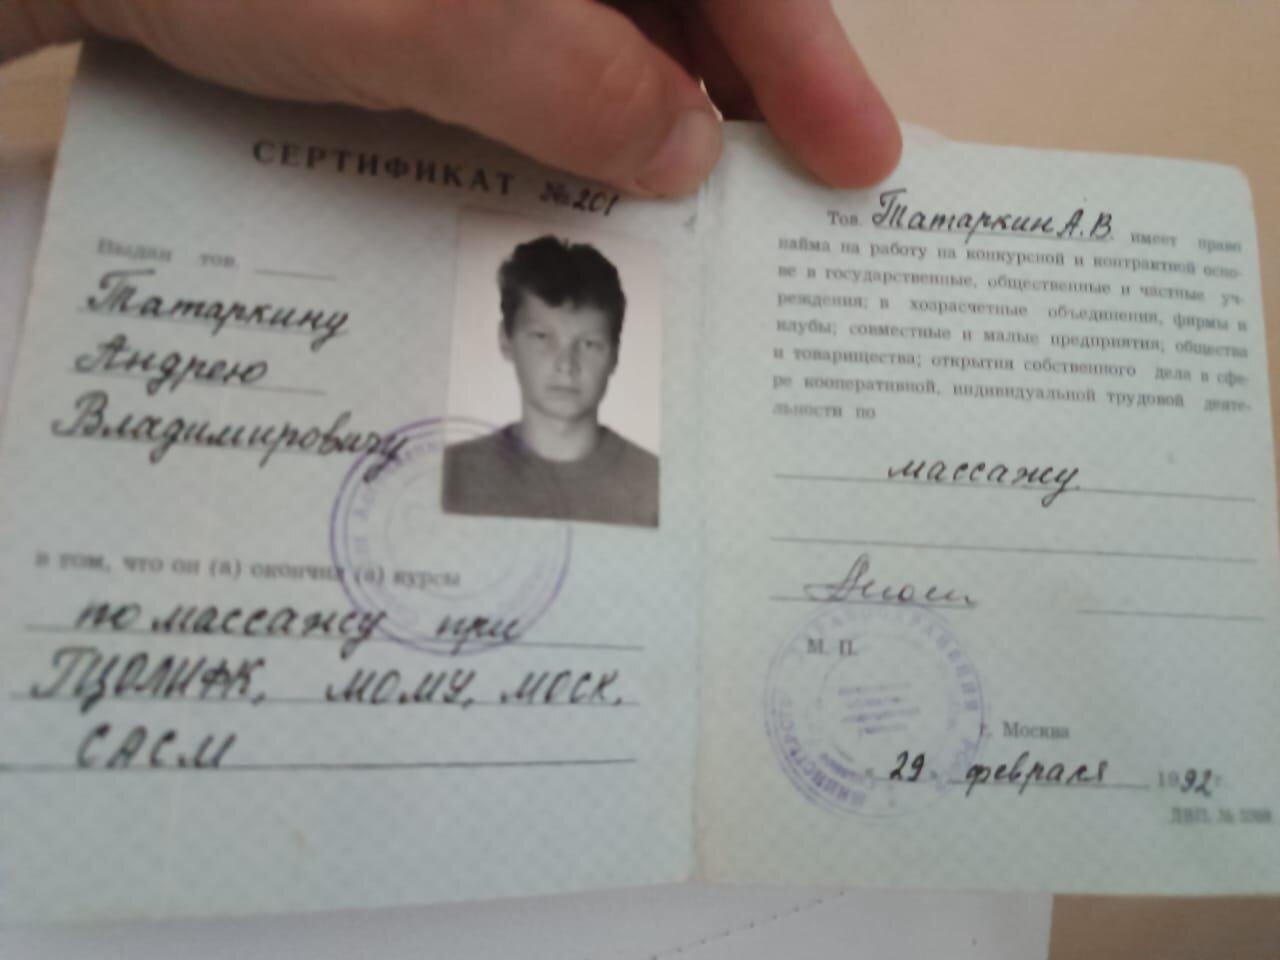 СЕРТИФИКАТ №201
Выдан тов.
Татаркину
Андрею
Владимировичу
в том, что он (а) окончил (а) курсы
по массажу при
ГЦОЛИФК, МОМУ, МОСК.
САСМ
Тов. Татаркин А.В. имеет право
найма на работу на конкурсной и контрактной осно-
ве в государственные, общественные и частные уч-
реждения; в хозрасчетные объединения, фирмы и
клубы; совместные и малые предприятия; общества
и товарищества; открытия собственного дела в сфе-
ре кооперативной, индивидуальной трудовой деяте-
льности по
массажу
М. П.
г. Москва
« 29 » февраля 1992 г.